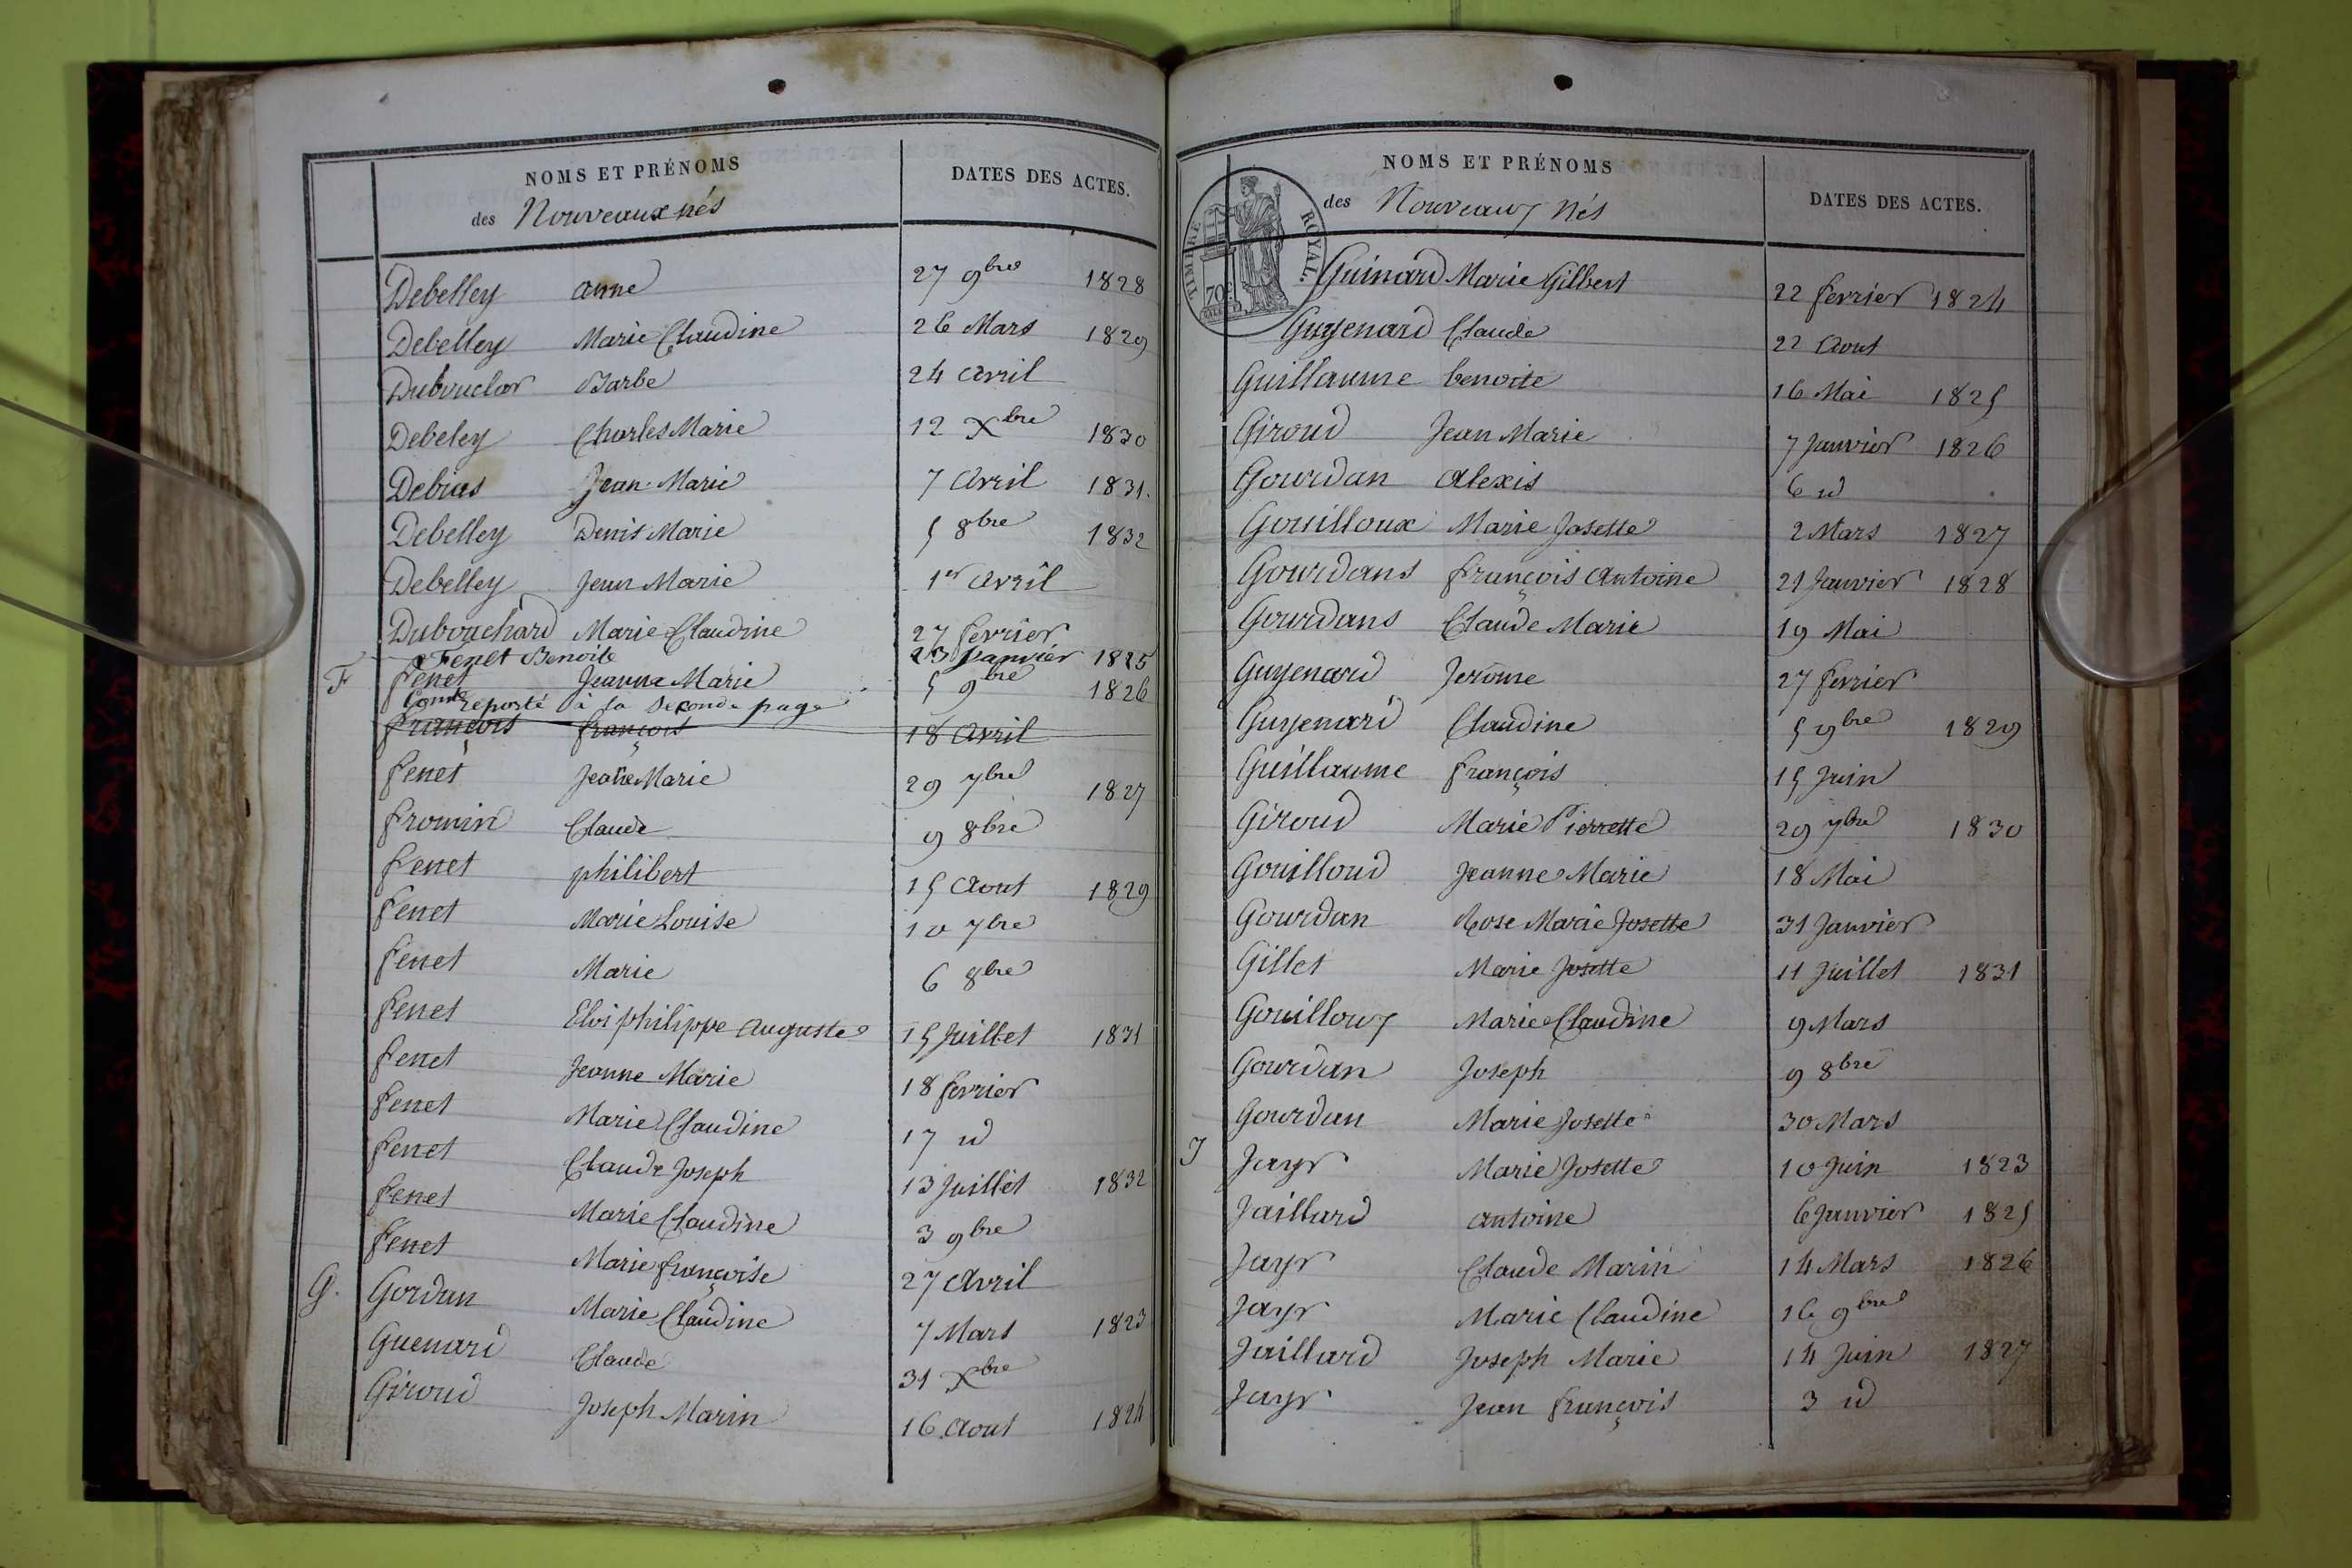 NOMS ET PRÉNOMS
DATES DES ACTES.
des Nouveaux nés
Debelley anne 27 9bre 1828
Debelley Marie Claudine 26 Mars 1829
Dubouclar Barbe 24 avril
Debeley Charles Marie 12 Xbre 1830
Debias Jean Marie 7 avril 1831.
Debelley Denis Marie 5 8bre 1832
Debelley Jean Marie 1er avril
Dubouchard Marie Claudine 27 fevrier
Fenet Benoite 23 Janvier 1825
F fenet Jeanne Marie 5 9bre 1826
Comte reporté à la seconde page
François françois 18 avril
fenet Jeane Marie 29 7bre 1827
fromin Claude 9 8bre
fenet philibert 15 Aout 1829
fenet Marie Louise 10 7bre
fenet Marie 6 8bre
fenet Eloi philippe Auguste 15 Juillet 1831
fenet Jeanne Marie 18 fevrier
fenet Marie Claudine 17 id
fenet Claude Joseph 13 Juillet 1832
fenet Marie Claudine 3 9bre
fenet Marie françoise 27 Avril
G. Gordan Marie Claudine 7 Mars 1823
Guenard Claude 31 Xbre
Giroud Joseph Marin 16 Aout 1824
NOMS ET PRÉNOMS
DATES DES ACTES.
des Nouveaux nés
TIMBRE ROYAL.
70c
Guinard Marie Gilbert 22 fevrier 1824
Guyenard Claude 22 Aout
Guillaume benoite 16 Mai 1825
Giroud Jean Marie 7 Janvier 1826
Gourdan Alexis 6 id
Gouilloux Marie Josette 2 Mars 1827
Gourdans françois Antoine 21 Janvier 1828
Gourdans Claude Marie 19 Mai
Guyenard Jerome 27 fevrier
Guyenard Claudine 5 9bre 1829
Guillaume françois 15 Juin
Giroud Marie Pierrette 29 7bre 1830
Gouilloud Jeanne Marie 18 Mai
Gourdan Rose Marie Josette 31 Janvier
Gillet Marie Josette 11 Juillet 1831
Gouilloux Marie Claudine 9 Mars
Gourdan Joseph 9 8bre
Gourdan Marie Josette 30 Mars
J Jayr Marie Josette 10 Juin 1823
Jaillard antoine 6 Janvier 1825
Jayr Claude Marin 14 Mars 1826
Jayr Marie Claudine 16 9bre
Jaillard Joseph Marie 14 Juin 1827
Jayr Jean françois 3 id